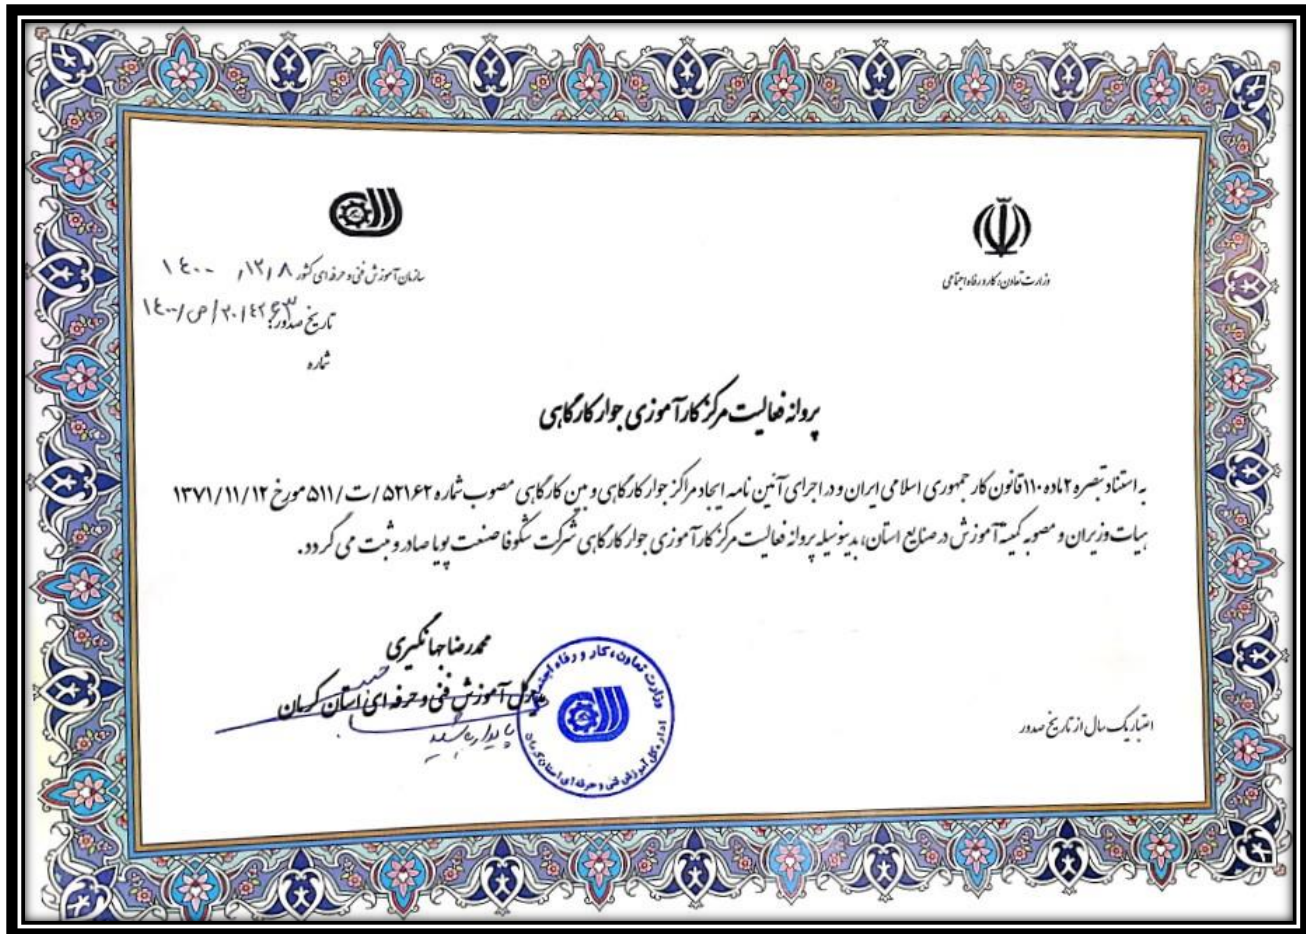 وزارت تعاون، کار و رفاه اجتماعی
سازمان آموزش فنی و حرفه ای کشور ۱۴۰۰/۱۲/۸
تاریخ صدور:
شماره
پروانه فعالیت مرکز کارآموزی جوار کارگاهی
به استناد تبصره ۲ ماده ۱۱۰ قانون کار جمهوری اسلامی ایران و در اجرای آئین نامه ایجاد مراکز جوار کارگاهی و بین کارگاهی مصوب شماره ۵۲۱۶۲/ت/۵۱۱ مورخ ۱۳۷۱/۱۱/۱۲
هیات وزیران و مصوبه کمیته آموزش در صنایع استان، بدینوسیله پروانه فعالیت مرکز کارآموزی جوار کارگاهی شرکت شکوفا صنعت پویا صادر و ثبت می گردد.
محمدرضا جهانگیری
مدیرکل آموزش فنی و حرفه ای استان کرمان
پایدار باشید
وزارت تعاون، کار و رفاه اجتماعی
اداره کل آموزش فنی و حرفه ای استان کرمان
اعتبار یک سال از تاریخ صدور